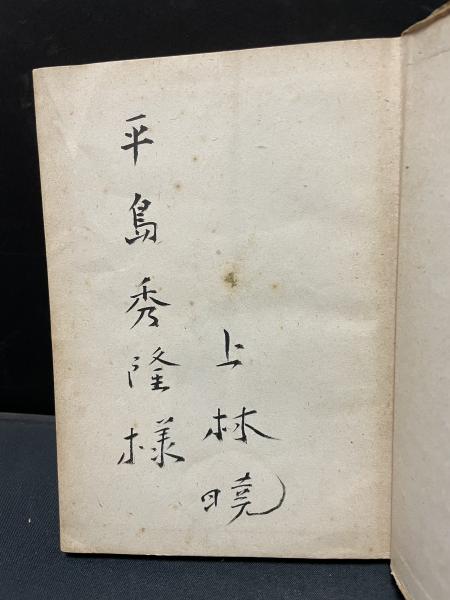 上林曉
平島秀隆様